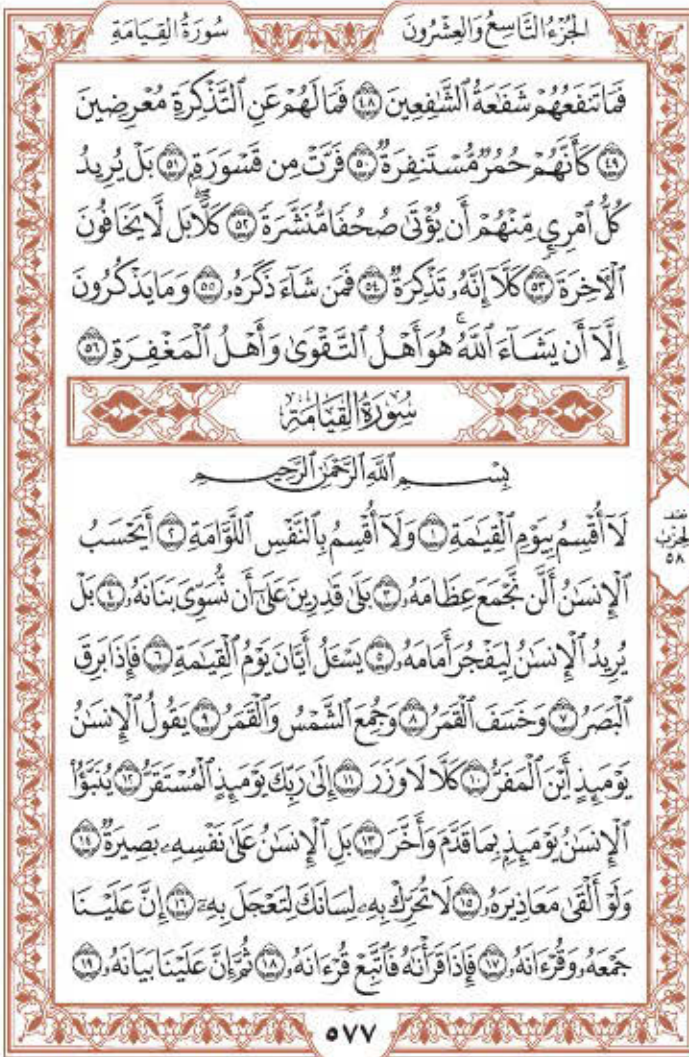 سُورَةُ القِيَامَةِ
الجُزْءُ التَّاسِعُ وَالعِشْرُونَ
فَمَا تَنفَعُهُمْ شَفَٰعَةُ ٱلشَّٰفِعِينَ ٤٨ فَمَا لَهُمْ عَنِ ٱلتَّذْكِرَةِ مُعْرِضِينَ
٤٩ كَأَنَّهُمْ حُمُرٌ مُّسْتَنفِرَةٌ ٥٠ فَرَّتْ مِن قَسْوَرَةٍۭ ٥١ بَلْ يُرِيدُ
كُلُّ ٱمْرِئٍ مِّنْهُمْ أَن يُؤْتَىٰ صُحُفًا مُّنَشَّرَةً ٥٢ كَلَّاۖ بَل لَّا يَخَافُونَ
ٱلْأٓخِرَةَ ٥٣ كَلَّآ إِنَّهُۥ تَذْكِرَةٌ ٥٤ فَمَن شَآءَ ذَكَرَهُۥ ٥٥ وَمَا يَذْكُرُونَ
إِلَّآ أَن يَشَآءَ ٱللَّهُۚ هُوَ أَهْلُ ٱلتَّقْوَىٰ وَأَهْلُ ٱلْمَغْفِرَةِ ٥٦
سُورَةُ القِيَامَةِ
بِسْمِ ٱللَّهِ ٱلرَّحْمَٰنِ ٱلرَّحِيمِ
لَآ أُقْسِمُ بِيَوْمِ ٱلْقِيَٰمَةِ ١ وَلَآ أُقْسِمُ بِٱلنَّفْسِ ٱللَّوَّامَةِ ٢ أَيَحْسَبُ
ٱلْإِنسَٰنُ أَلَّن نَّجْمَعَ عِظَامَهُۥ ٣ بَلَىٰ قَٰدِرِينَ عَلَىٰٓ أَن نُّسَوِّىَ بَنَانَهُۥ ٤ بَلْ
يُرِيدُ ٱلْإِنسَٰنُ لِيَفْجُرَ أَمَامَهُۥ ٥ يَسْـَٔلُ أَيَّانَ يَوْمُ ٱلْقِيَٰمَةِ ٦ فَإِذَا بَرِقَ
ٱلْبَصَرُ ٧ وَخَسَفَ ٱلْقَمَرُ ٨ وَجُمِعَ ٱلشَّمْسُ وَٱلْقَمَرُ ٩ يَقُولُ ٱلْإِنسَٰنُ
يَوْمَئِذٍ أَيْنَ ٱلْمَفَرُّ ١٠ كَلَّا لَا وَزَرَ ١١ إِلَىٰ رَبِّكَ يَوْمَئِذٍ ٱلْمُسْتَقَرُّ ١٢ يُنَبَّؤُا۟
ٱلْإِنسَٰنُ يَوْمَئِذٍۭ بِمَا قَدَّمَ وَأَخَّرَ ١٣ بَلِ ٱلْإِنسَٰنُ عَلَىٰ نَفْسِهِۦ بَصِيرَةٌ ١٤
وَلَوْ أَلْقَىٰ مَعَاذِيرَهُۥ ١٥ لَا تُحَرِّكْ بِهِۦ لِسَانَكَ لِتَعْجَلَ بِهِۦٓ ١٦ إِنَّ عَلَيْنَا
جَمْعَهُۥ وَقُرْءَانَهُۥ ١٧ فَإِذَا قَرَأْنَٰهُ فَٱتَّبِعْ قُرْءَانَهُۥ ١٨ ثُمَّ إِنَّ عَلَيْنَا بَيَانَهُۥ ١٩
نصف
الحزب
٥٨
٥٧٧